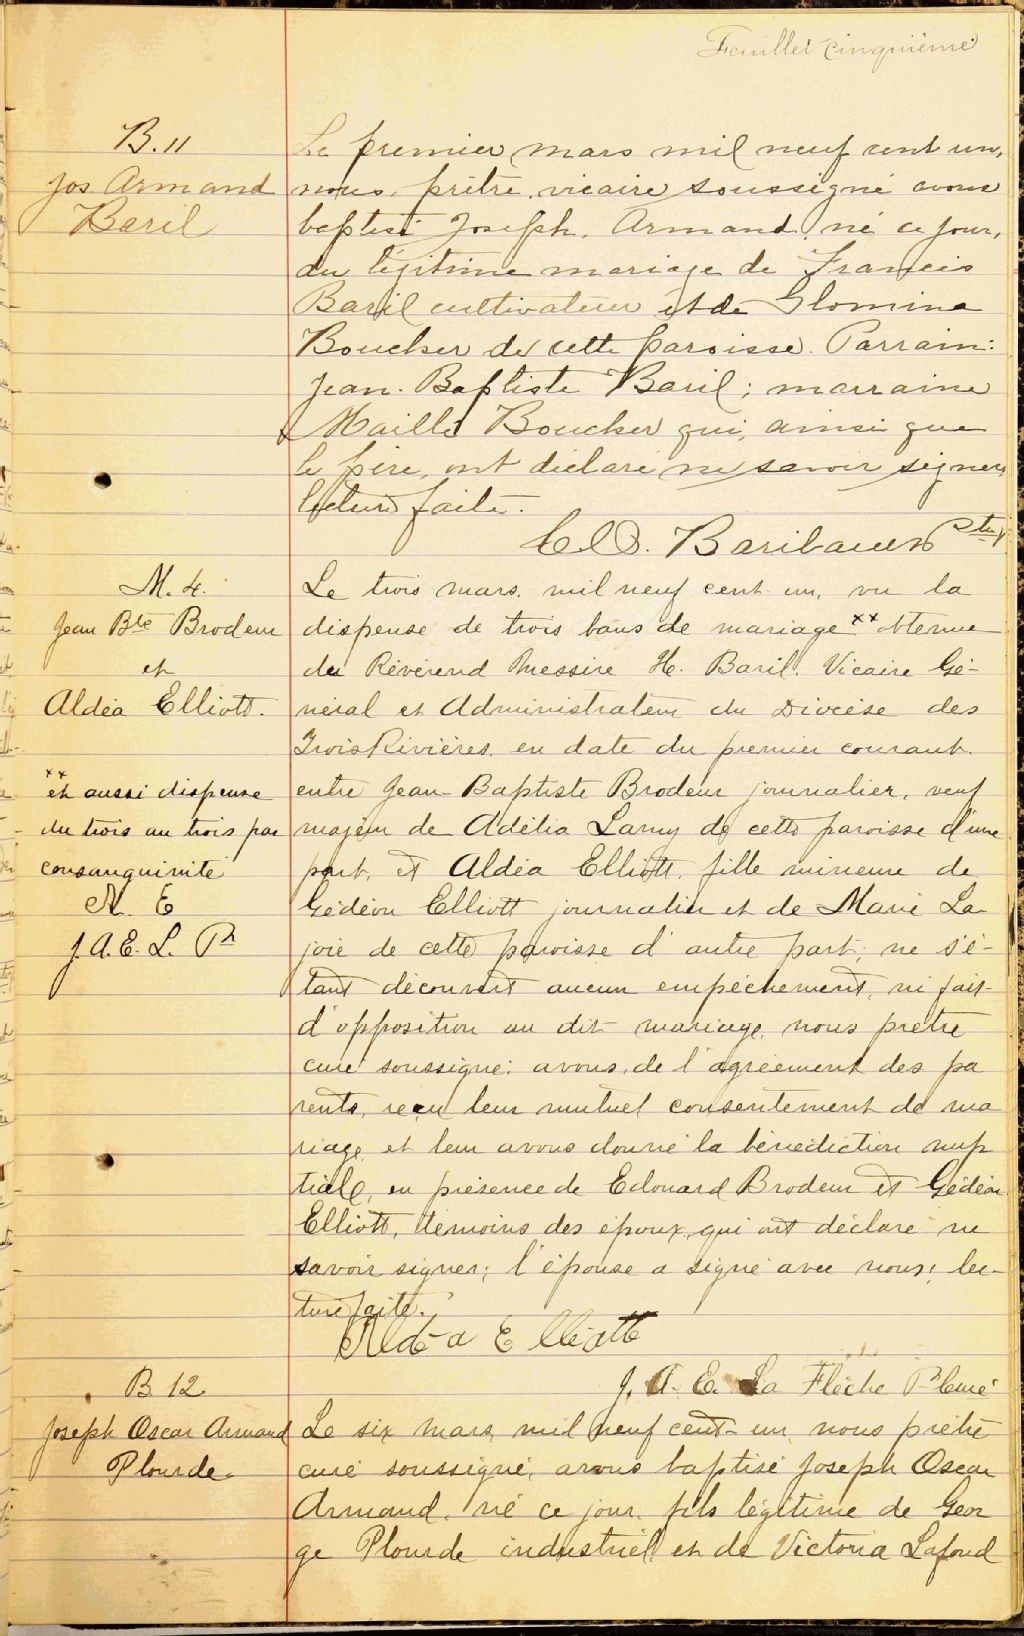 Feuillet cinquième
B. 11
Jos Armand
Baril
Le premier mars mil neuf cent un,
nous, prêtre, vicaire soussigné avons
baptisé Joseph, Armand, né ce jour,
du légitime mariage de Francis
Baril cultivateur et de Glomina
Boucher de cette paroisse. Parrain:
Jean-Baptiste Baril; marraine
Maille Boucher qui, ainsi que
le père, ont déclaré ne savoir signer,
lecture faite.
Baribeau Ptre
M. 4.
Jean Bte Brodeur
et
Aldéa Elliott.
xx
et aussi dispense
du trois au trois par
consanguinité
A. E
J. A. E. L. Pt
Le trois mars, mil neuf cent un, vu la
dispense de trois bans de mariage xx obtenue
du Révérend Messire H. Baril, Vicaire Gé-
néral et Administrateur du Diocèse des
Trois Rivières, en date du premier courant
entre Jean-Baptiste Brodeur journalier, veuf
majeur de Adélia Lamy de cette paroisse d'une
part, et Aldéa Elliott, fille mineure de
Gédéon Elliott journalier et de Marie La
joie de cette paroisse d'autre part; ne s'é-
tant découvert aucun empêchement, ni fait
d'opposition au dit mariage, nous prêtre
curé soussigné, avons, de l'agréement des pa
rents, reçu leur mutuel consentement de ma
riage et leur avons donné la bénédiction nup
tiale, en présence de Edouard Brodeur et Gédéon
Elliott, témoins des époux, qui ont déclaré ne
savoir signer; l'épouse a signé avec nous; lec-
ture faite.
Aldéa Elliott
J. A. E. La Flèche Ptre curé
B 12
Joseph Oscar Armand
Plourde
Le six mars, mil neuf cent-un, nous prêtre
curé soussigné, avons baptisé Joseph Oscar
Armand, né ce jour, fils légitime de Geor
ge Plourde industriel et de Victoria Lafond